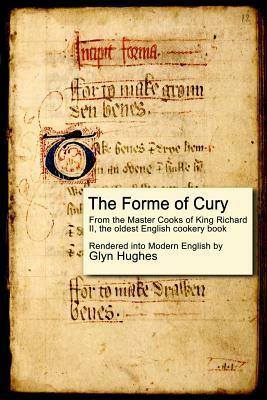 12
Incipit forma.
ffor to make gronn
den benes.
Take benes & drye hem
in an ovene & hulle
The Forme of Cury
From the Master Cooks of King Richard
II, the oldest English cookery book
Rendered into Modern English by
Glyn Hughes
ffor to make drawen
benes.